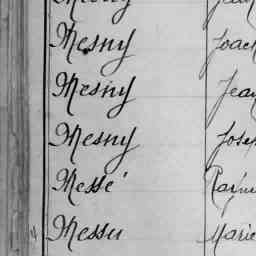 Mesny Joac
Mesny Jean
Mesny Josep
Messé Raym
Messu Marie